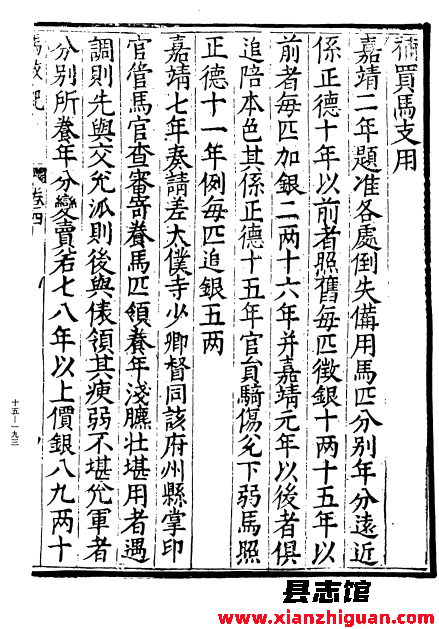 補買馬支用
嘉靖二年題准各處倒失備用馬匹分別年分遠近
係正德十年以前者照舊每匹徵銀十兩十五年以
前者每匹加銀二兩十六年并嘉靖元年以後者俱
追陪本色其係正德十五年官員騎傷兊下弱馬照
正德十一年例每匹追銀五兩
嘉靖七年奏請差太僕寺少卿督同該府州縣掌印
官管馬官查審寄養馬匹領養年淺臕壯堪用者遇
調則先與交兊派則後與俵領其瘐弱不堪兊軍者
分別所養年分變賣若七八年以上價銀八九兩十
馬政 卷四
十五—一九三
县志馆
www.xianzhiguan.com